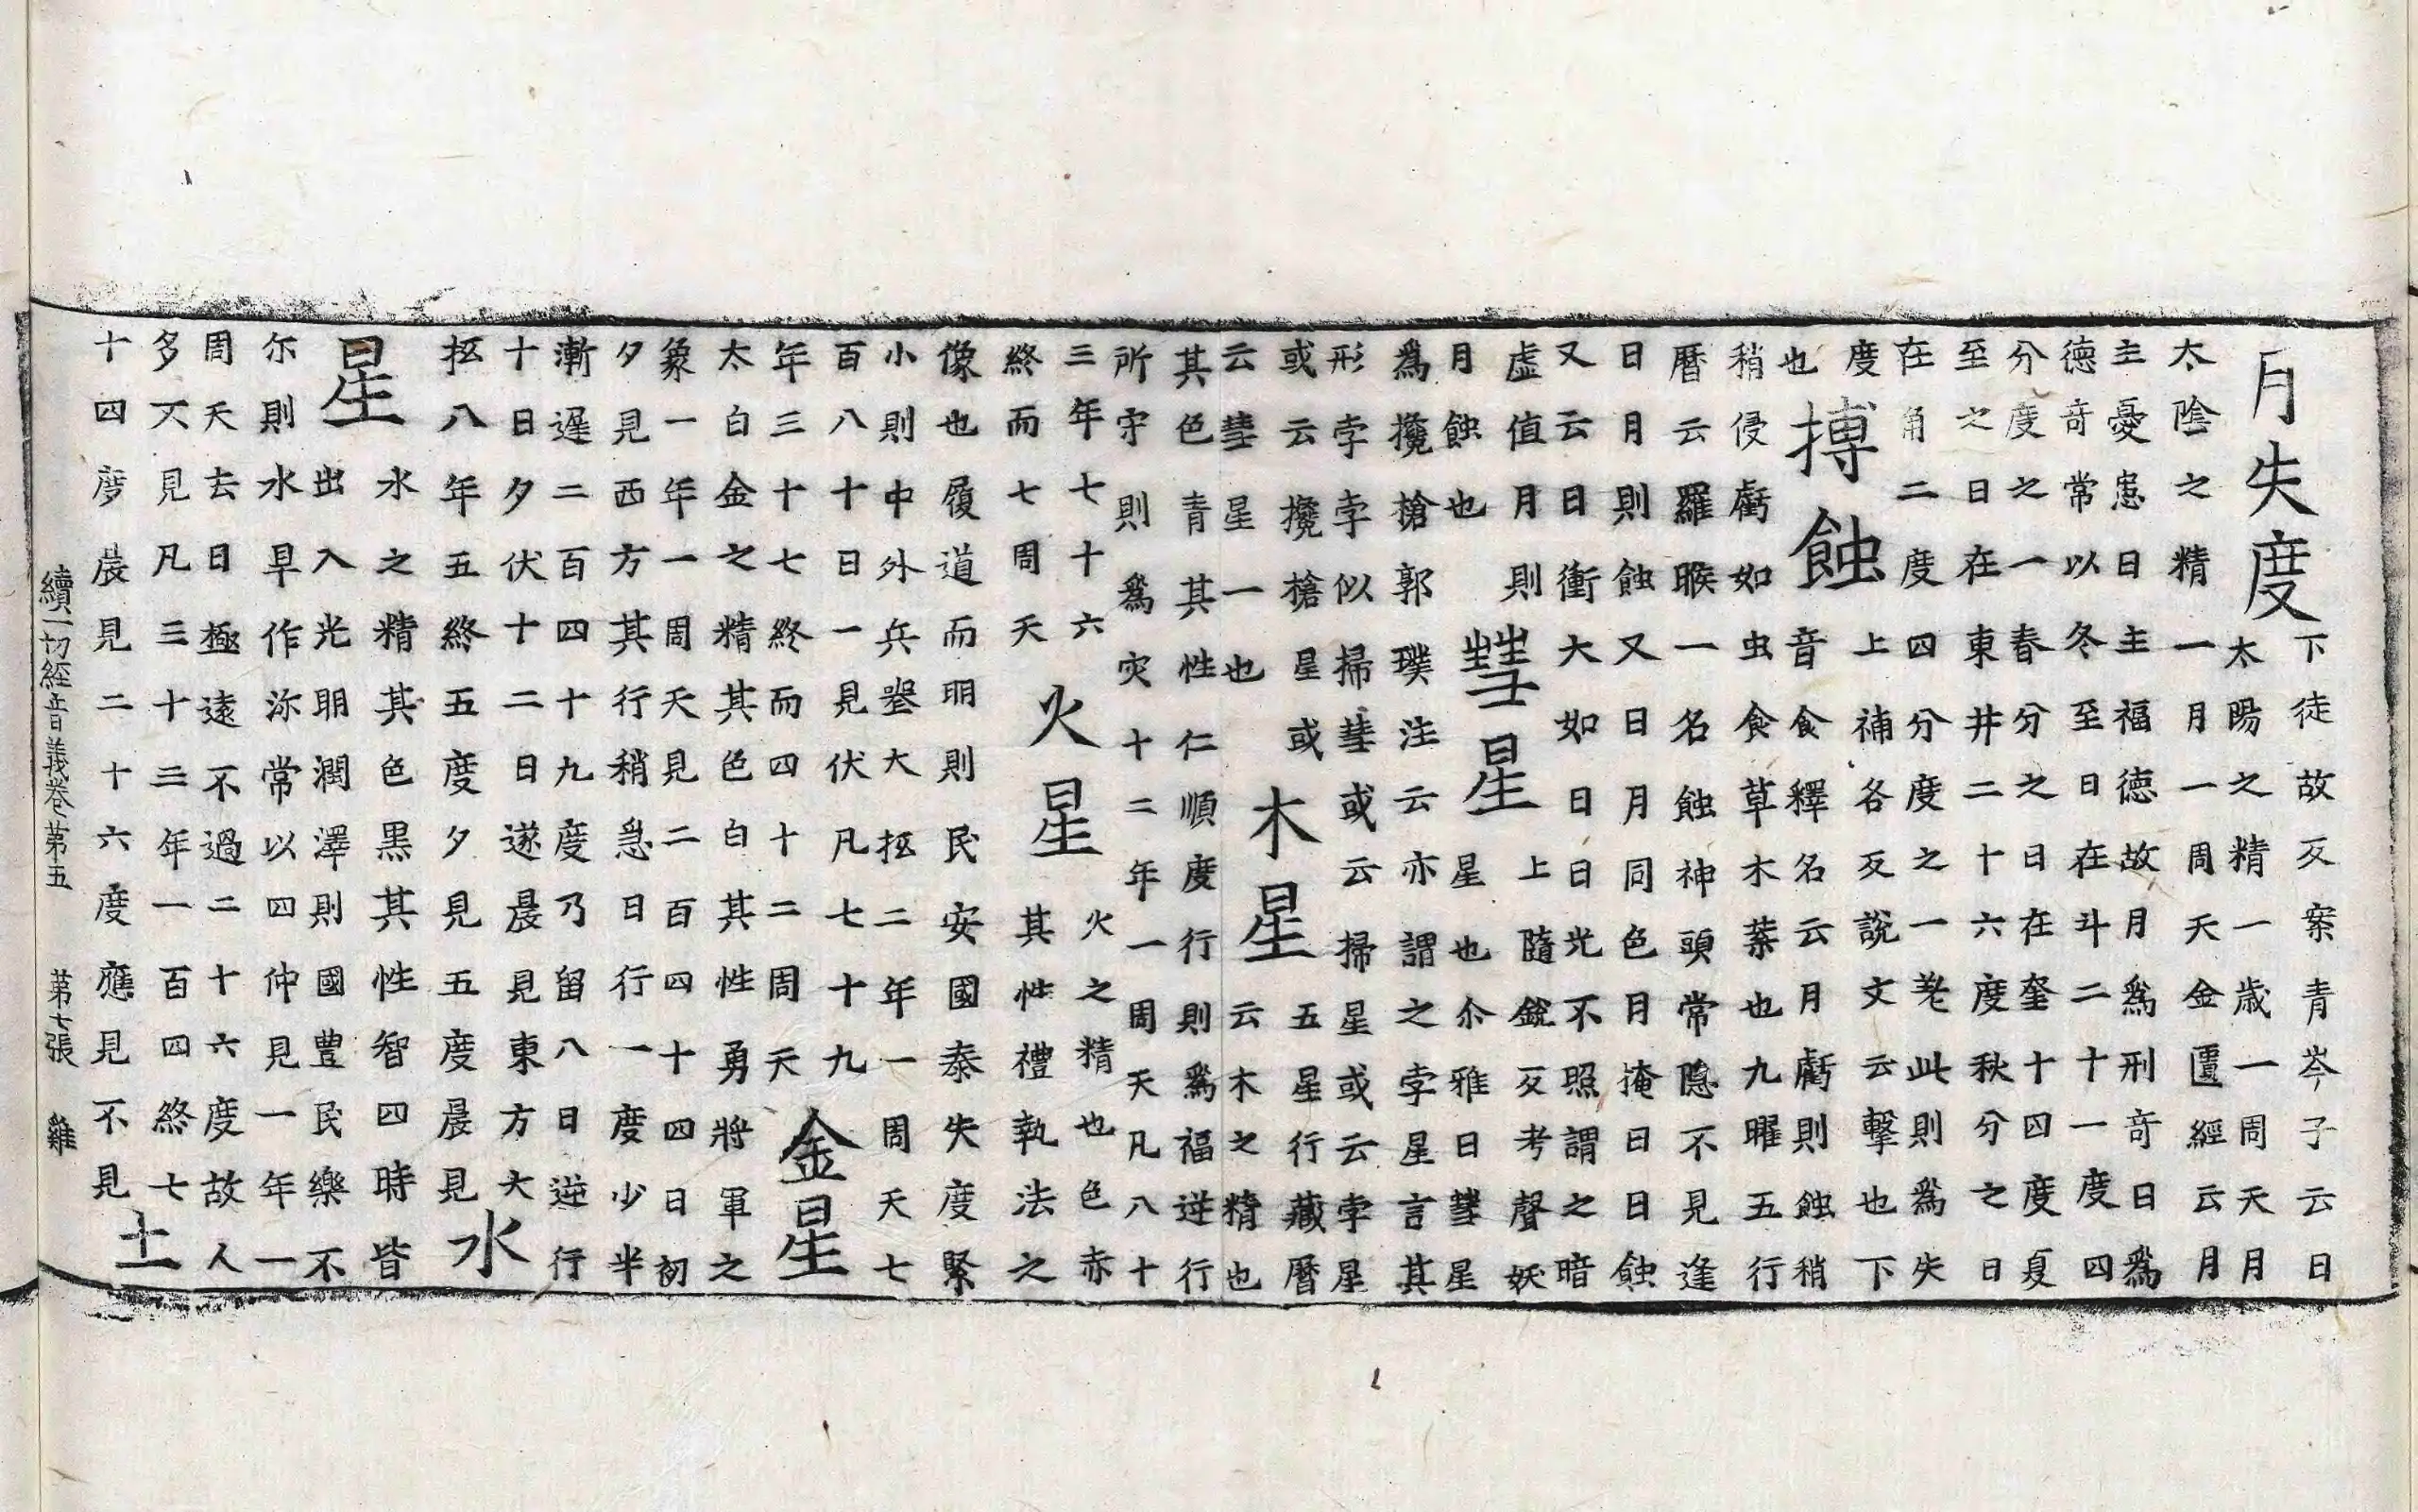 月失度 下徒故反案青岑子云日
太陽之精一歲一周天月
太陰之精一月一周天金匱經云月
主憂患日主福德故月爲刑奇日爲
德奇常以冬至日在斗二十一度四
分度之一春分之日在奎十四度夏
至之日在東井二十六度秋分之日
在角二度四分度之一差此則爲失
度
也
搏蝕 上補各反說文云擊也下
音食釋名云月虧則蝕稍
稍侵虧如虫食草木葉也九曜五行
曆云羅睺一名蝕神頭常隱不見逢
日月則蝕又日月同色月掩日日蝕
又云日衝大如日日光不照謂之暗
虛值月則
月蝕也
彗星 上隨銳反考聲妖
星也尒雅曰彗星
爲攙搶郭璞注云亦謂之孛星言其
形孛孛似掃彗或云掃星或云孛星
或云攙槍星或
云彗星一也
木星 五星行藏曆
云木之精也
其色青其性仁順度行則爲福逆行
所守則爲灾十二年一周天凡八十
三年七十六
終而七周天
火星 火之精也色赤
其性禮執法之
像也履道而明則民安國泰失度緊
小則中外兵喪大抵二年一周天七
百八十日一見伏凡七十九
年三十七終而四十二周天
金星
太白金之精其色白其性勇將軍之
象一年一周天見二百四十四日初
夕見西方其行稍急日行一度少半
漸遲二百四十九度乃留八日逆行
十日夕伏十二日遂晨見東方大
抵八年五終五度夕見五度晨見
水
星 水之精其色黑其性智四時皆
出入光明潤澤則國豊民樂不
尓則水旱作沴常以四仲見一年一
周天去日極遠不過二十六度故人
多不見凡三十三年一百四終七
十四度晨見二十六度應見不見
土
續一切經音義卷第五 第七張 雞